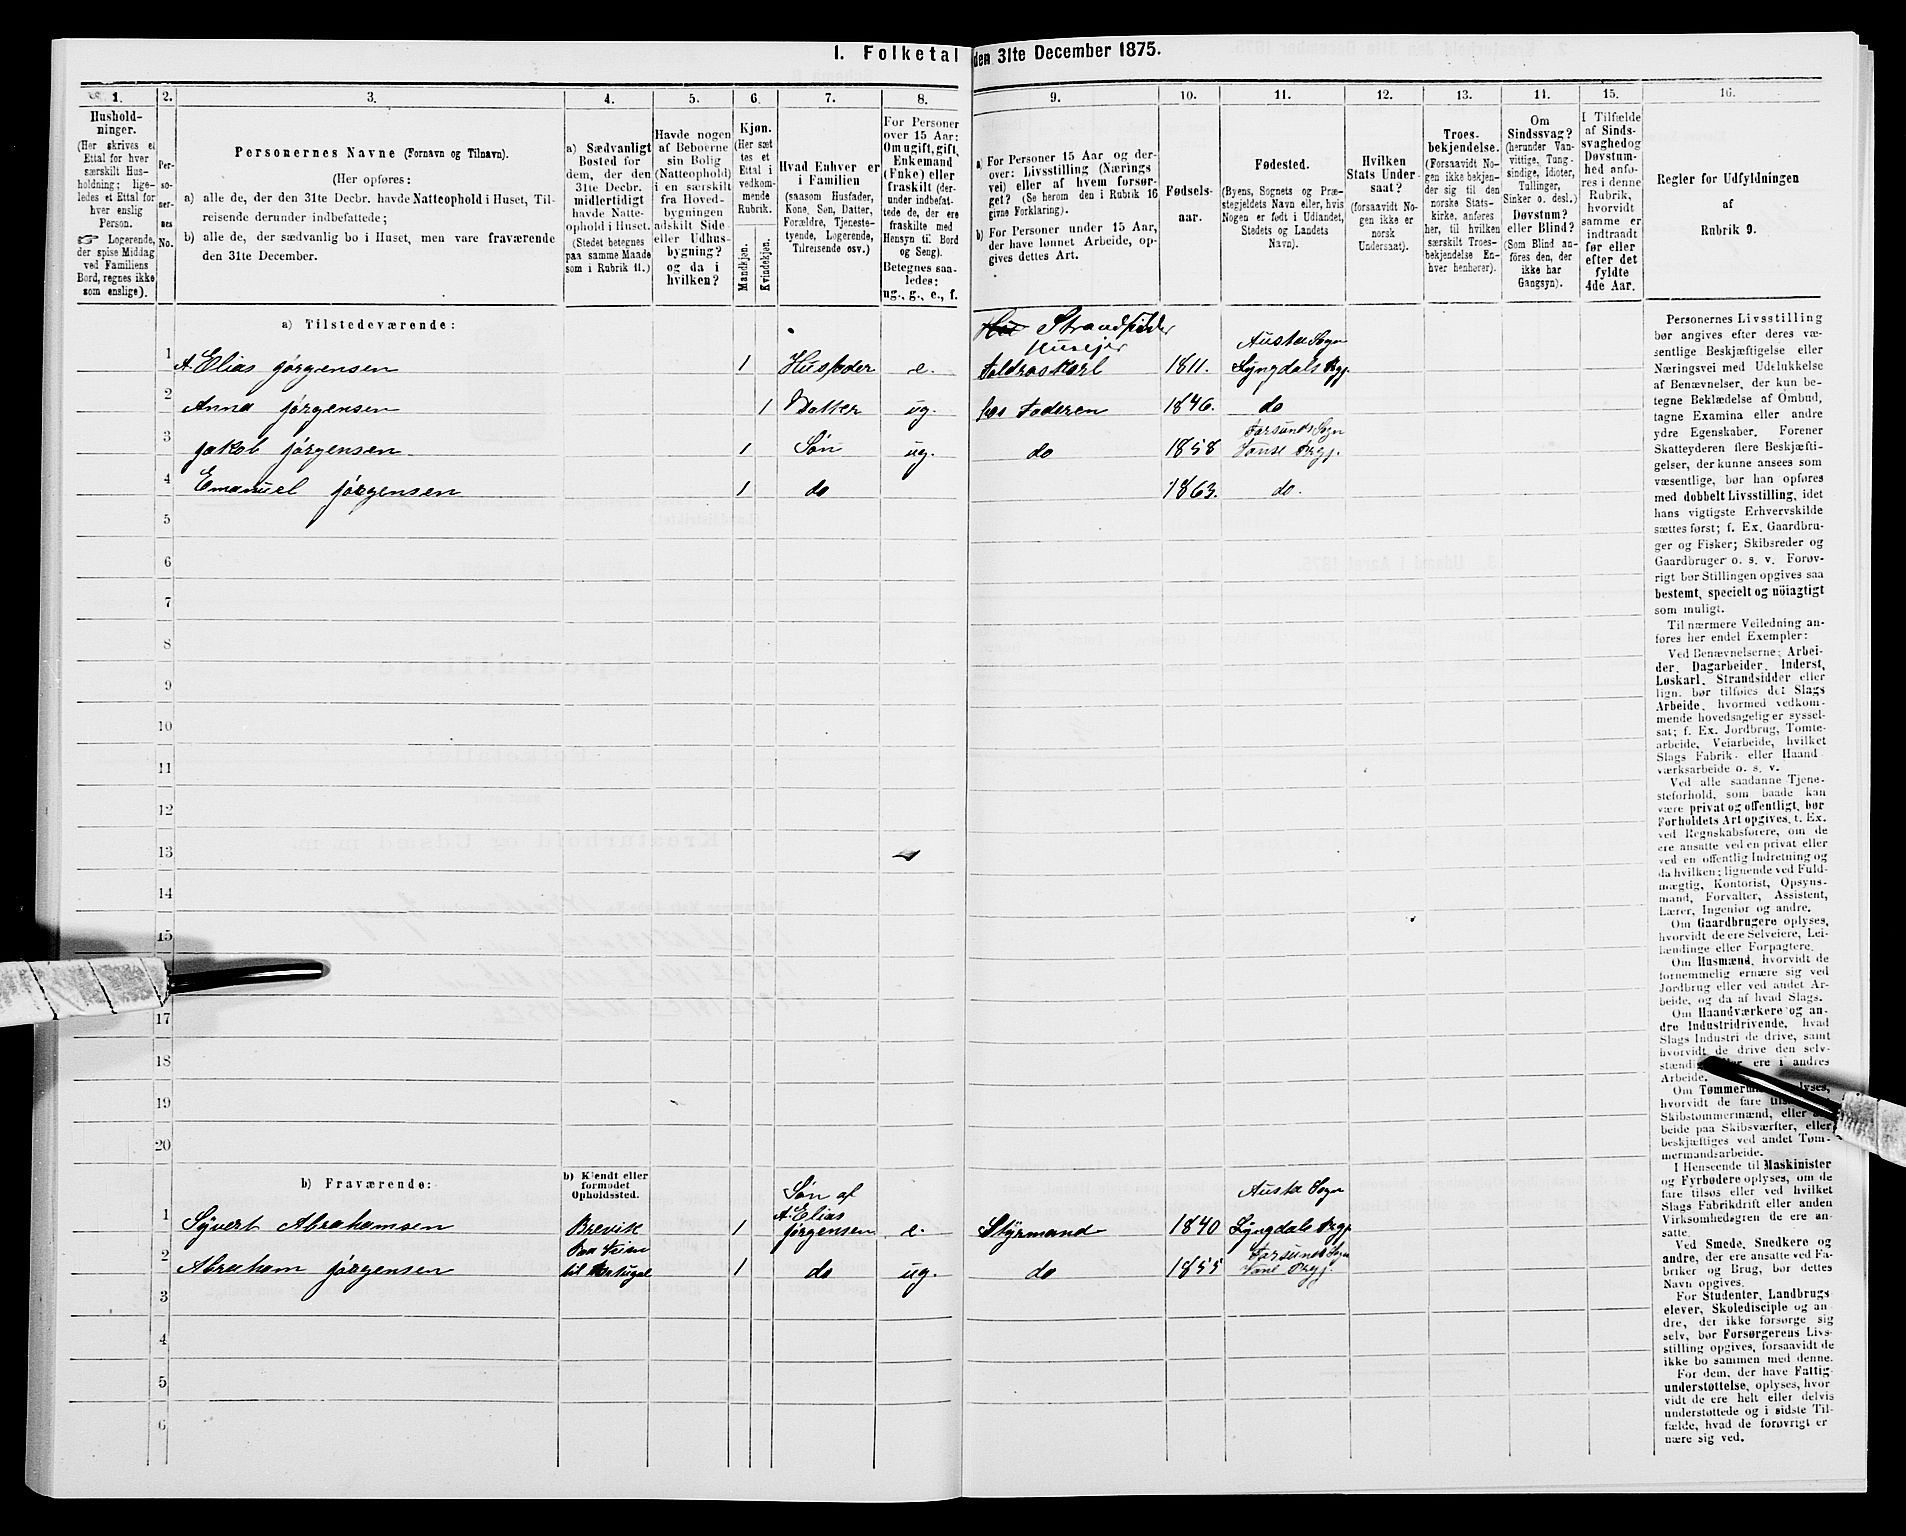 I. Folketal den 31te December 1875.
1. 2. 3. 4. 5. 6. 7. 8. 9. 10. 11. 12. 13. 14. 15. 16.
Hushold-
ninger.
(Her skrives et
Ettal for hver
særskilt Hus-
holdning; lige-
ledes et Ettal for
hver enslig
Person.
☞ Logerende,
der spise Middag
ved Familiens
Bord, regnes ikke
som enslige).
Per-
so-
ner-
nes
No.
Personernes Navne (Fornavn og Tilnavn).
(Her opføres:
a) alle de, der den 31te Decbr. havde Natteophold i Huset, Til-
reisende derunder indbefattede;
b) alle de, der sædvanlig bo i Huset, men vare fraværende
den 31te December.
a) Sædvanligt
Bosted for
dem, der den
31te Decbr.
midlertidigt
havde Natte-
ophold i Huset.
(Stedet betegnes
paa samme Maade
som i Rubrik 11.)
Havde nogen
af Beboerne
sin Bolig
(Natteophold)
i en særskilt
fra Hoved-
bygningen
adskilt Side-
eller Udhus-
bygning?
og da i
hvilken?
Kjøn.
(Her sæt
tes et
Ettal i
vedkom-
mende
Rubrik.
Mandkjøn.
Kvindekjøn.
Hvad Enhver er
i Familien
(saasom Husfader,
Kone, Søn, Datter,
Forældre, Tjeneste-
tyende, Logerende,
Tilreisende osv.)
For Personer
over 15 Aar:
Om ugift, gift,
Enkemand
(Enke) eller
fraskilt (der-
under indbefat-
tede de, der ere
fraskilte med
Hensyn til Bord
og Seng).
Betegnes saa-
ledes:
ug., g., e., f.
a) For Personer 15 Aar og der-
over: Livsstilling (Nærings
vei) eller af hvem forsør-
get? (Se herom den i Rubrik 16
givne Forklaring).
b) For Personer under 15 Aar,
der have lønnet Arbeide, op-
gives dettes Art.
Fødsels-
aar.
Fødested.
(Byens, Sognets og Præ-
stegjeldets Navn eller, hvis
Nogen er født i Udlandet,
Stedets og Landets
Navn).
Hvilken
Stats Under-
saat?
(forsaavidt No-
gen ikke er
norsk
Undersaat).
Troes-
bekjendelse.
(Forsaavidt No-
gen ikke bekjen-
der sig til den
norske Stats-
kirke, anføres
her, til hvilken
særskilt Troes-
bekjendelse En-
hver henhører).
Om
Sindssvag?
(herunder Van-
vittige, Tung-
sindige, Idioter,
Tullinger,
Sinker o. desl.)
Døvstum?
eller Blind?
(Som Blind an-
føres den, der
ikke har
Gangsyn).
I Tilfælde
af Sinds-
svaghed og
Døvstum-
hed anfø-
res i denne
Rubrik,
hvorvidt
samme er
indtraadt
før eller
efter det
fyldte
4de Aar.
Regler for Udfyldningen
af
Rubrik 9.
a) Tilstedeværende:
Strandsidder
Huseier
Austa Sogn
1 A. Elias Jørgensen 1 Husfader e. 1811. Lyngdals Prgj.
2 Anna Jørgensen 1 Datter ug. Faderen 1846. do
Farsunds Sogn
3 Jakob Jørgensen 1 Søn ug. do 1858 Vanse Prgj.
4 Emanuel Jørgensen 1 do 1863. do.
5
6
7
8
9
10
11
12
13
14
15
17
18
19
20
b) Fraværende:
b) Kjendt eller
formodet
Opholdssted.
Søn af
A. Elias
Austa Sogn
1 Syvert Abrahamsen Brevik 1 Jørgensen e. Styrmand 1840 Lyngdals Prgj
Paa Reise
Farsunds Sogn
2 Abraham Jørgensen til Portugal 1 do ug. do 1855 Vanse Prgj.
3
4
5
6
Personernes Livsstilling
bør angives efter deres væ-
sentlige Beskjæftigelse eller
Næringsvei med Udelukkelse
af Benævnelser, der kun be-
tegne Beklædelse af Ombud,
tagne Examina eller andre
ydre Egenskaber. Forener
Skatteyderen flere Beskjæfti-
gelser, der kunne ansees som
væsentlige, bør han opføres
med dobbelt Livsstilling, idet
hans vigtigste Erhvervskilde
sættes først; f. Ex. Gaardbru-
ger og Fisker; Skibsreder og
Gaardbruger o. s. v. Forøv-
rigt bør Stillingen opgives saa
bestemt, specielt og nøiagtigt
som muligt.
Til nærmere Veiledning an-
føres her endel Exempler:
Ved Benævnelserne: Arbei-
der, Dagarbeider, Inderst,
Løskarl, Strandsidder eller
lign. bør tilføies det Slags
Arbeide, hvormed vedkom-
mende hovedsagelig er syssel-
sat; f. Ex. Jordbrug, Tomte-
arbeide, Veiarbeide, hvilket
Slags Fabrik- eller Haand
værksarbeide o. s. v.
Ved alle saadanne Tjene-
steforhold, som baade kan
være privat og offentligt, bør
Forholdets Art opgives, t. Ex.
ved Regnskabsførere, om de
ere ansatte ved en privat eller
ved en offentlig Indretning og
da hvilken; lignende ved Fuld-
mægtig, Kontorist, Opsyns-
mand, Forvalter, Assistent,
Lærer, Ingeniør og andre.
Om Gaardbrugere oplyses,
hvorvidt de ere Selveiere, Lei-
lændinge eller Forpagtere.
Om Husmænd, hvorvidt de
fornemmelig ernære sig ved
Jordbrug eller ved andet Ar-
beide, og da af hvad Slags.
Om Haandværkere og an-
dre Industridrivende, hvad
Slags Industri de drive, samt
hvorvidt de drive den selv-
ere i andres
Arbeide.
Om
hvorvidt de fare
Skibstømmermænd, eller
beide paa Skibsværfter, eller
beskjæftiges ved andet Tøm-
mermandsarbeide.
I Henseende til Maskinister
og Fyrbødere oplyses, om de
fare tilsøs eller ved hvilket
Slags Fabrikdrift eller anden
Virksomhedsgren de ere an-
satte.
Ved Smede, Snedkere og
andre, der ere ansatte ved Fa-
briker og Brug, bør dettes
Navn opgives.
For Studenter, Landbrugs
elever, Skoledisciple og an-
dre, der ikke forsørge sig
selv, bør Forsørgerens Livs-
stilling opgives, forsaavidt de
ikke bo sammen med denne.
For dem, der have Fattig-
understøttelse, oplyses, hvor
vidt de ere helt eller delvis
understøttede og i sidste Til-
fælde, hvad de forøvrigt er
nære sig ved.